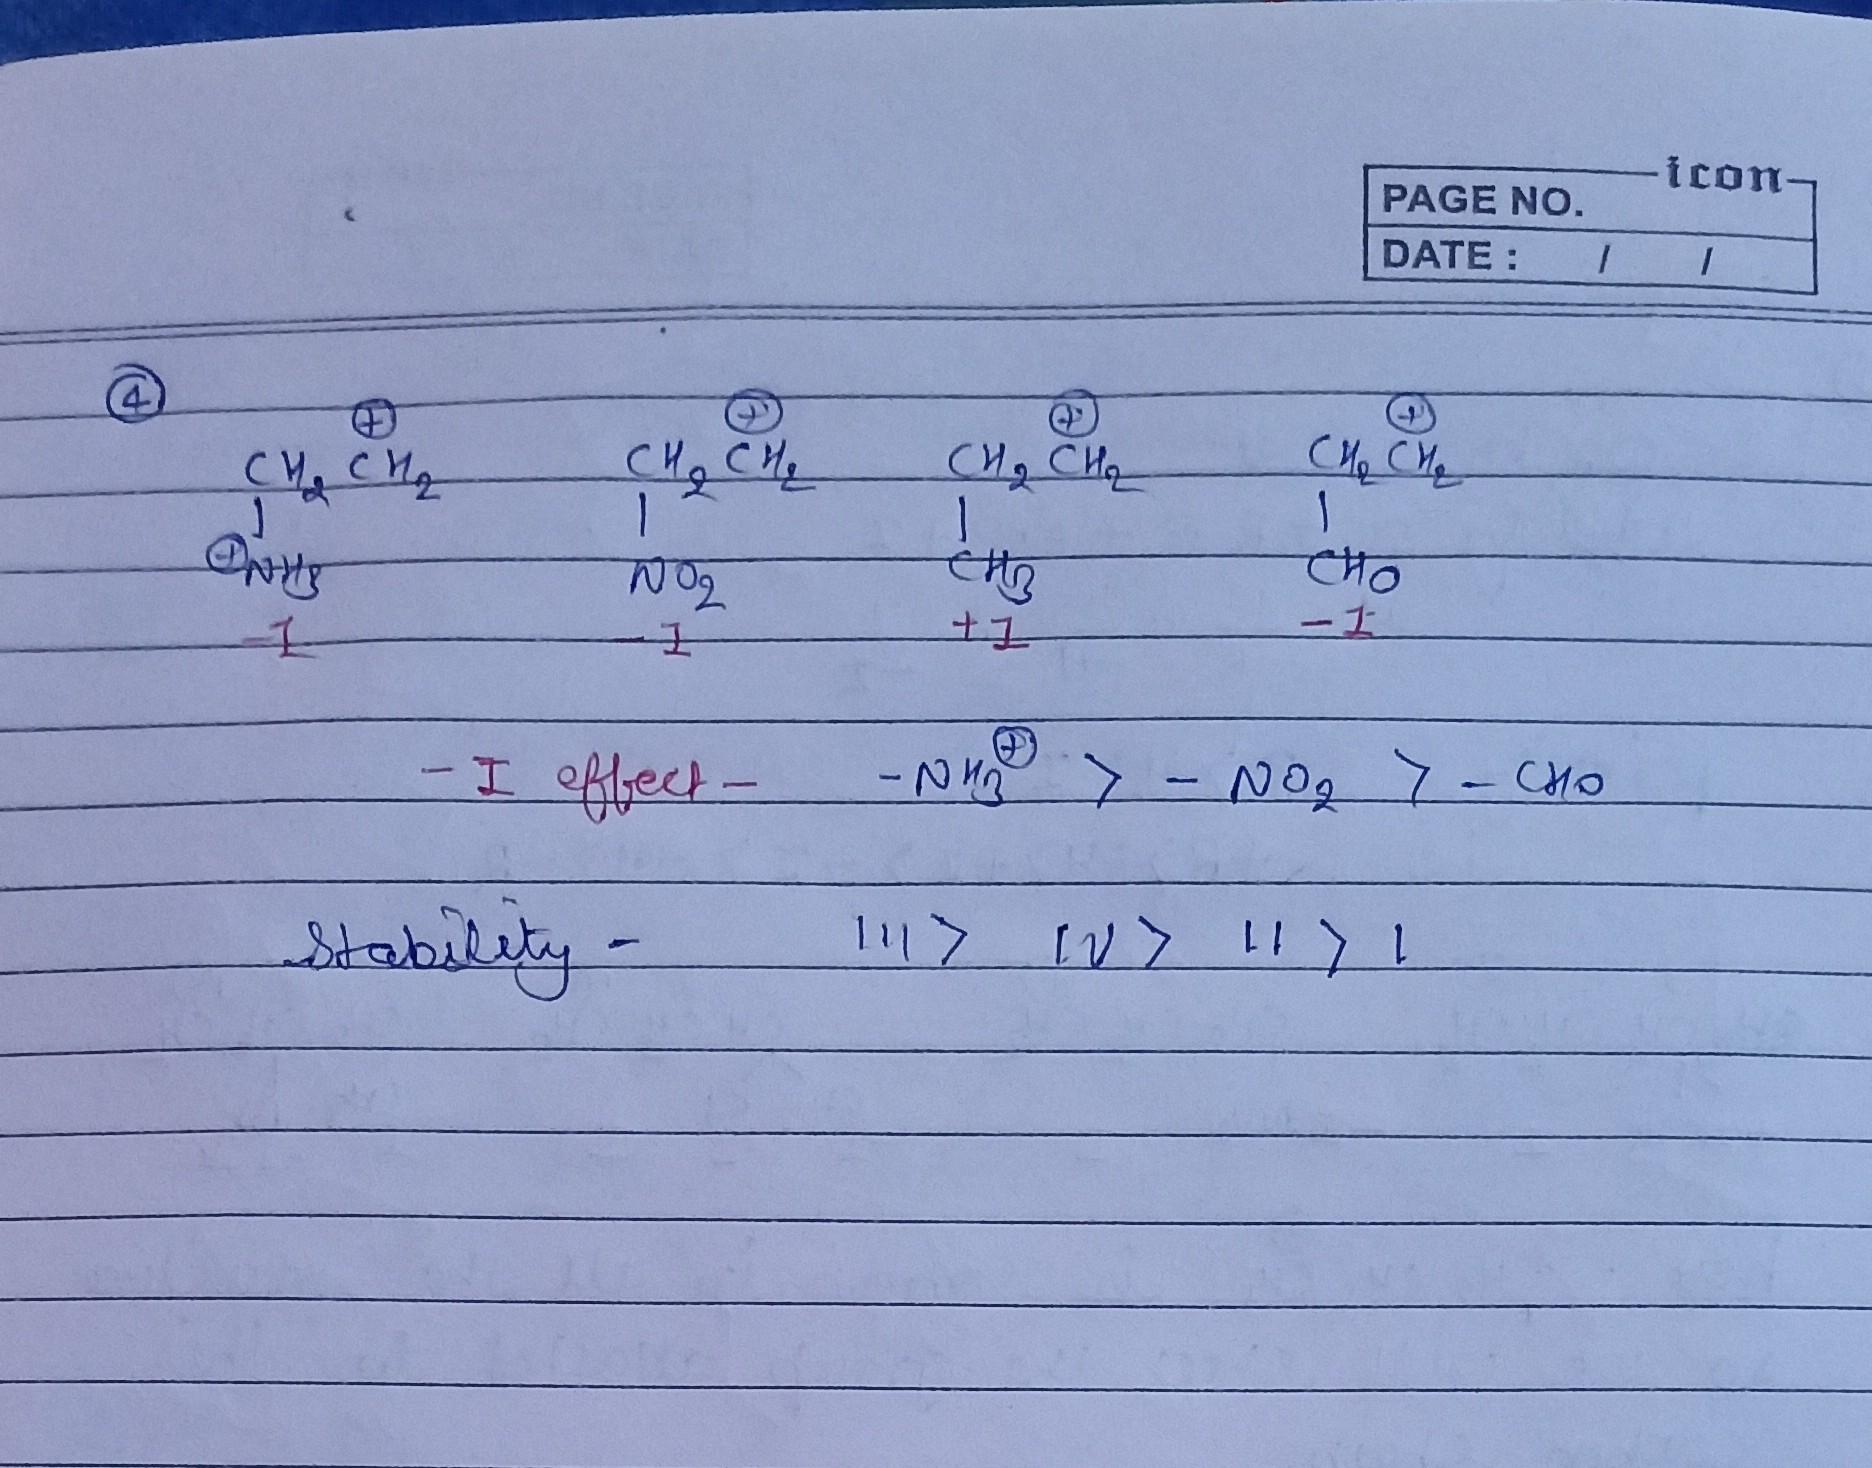 icon
PAGE NO.
DATE : / /
④
⊕ ⊕ ⊕ ⊕
CH₂ CH₂ CH₂ CH₂ CH₂ CH₂ CH₂ CH₂
| | | |
⊕NH₃ NO₂ CH₃ CHO
-I -I +I -I
- I effect - -NH₃⊕ > - NO₂ > - CHO
Stability - III > IV > II > I